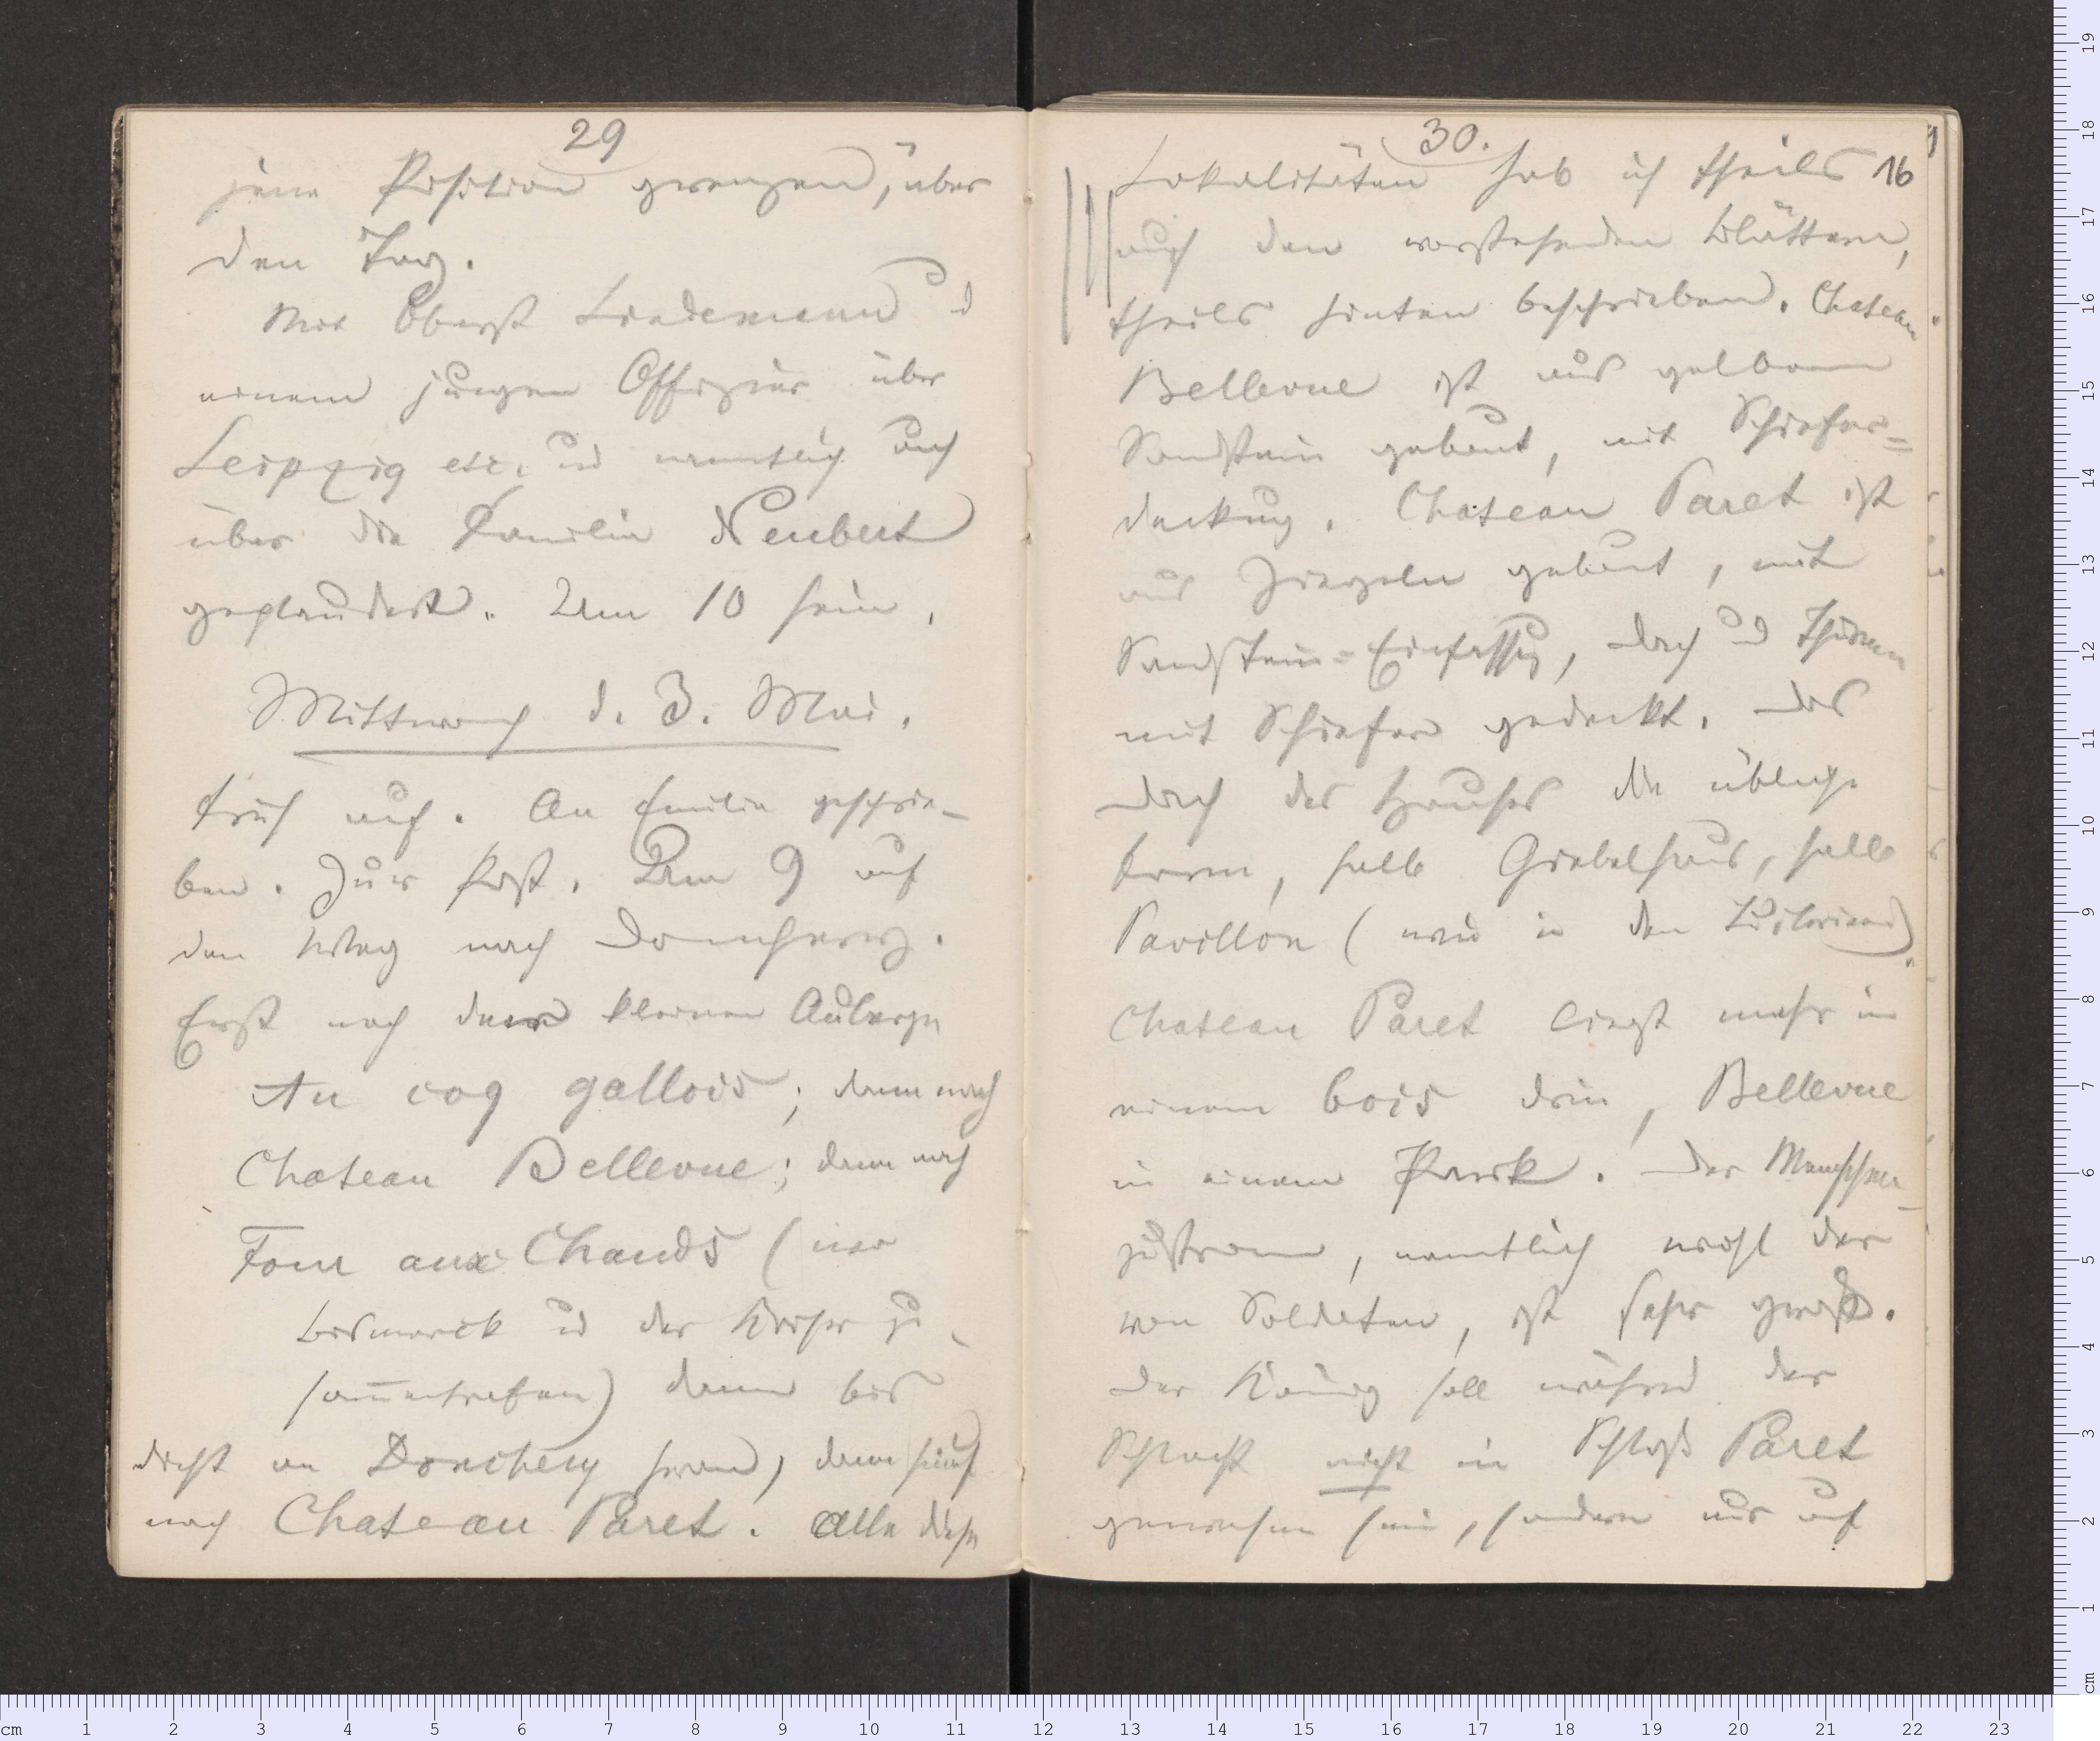 29
jene Position gewagen, über
den Tag.
Mit Oberst Lindemann u
einem jungen Offizier über
Leipzig etc. und namtlich auch
über die Familie Neubert
geplaudert. Um 10 heim.
Mittwoch d. 3. Mai.
Früh auf. An Emilie geschrie-
ben. Zur Post. Um 9 auf
den Weg nach Donchery.
Erst nach der kleinen Auberge
Au coq gallois; dann nach
Chateau Bellevue; dann nach
Four aux Chauds (wo
Bismarck und der Kaiser zu-
sam̅entrafen) dann bis
dicht an Donchery heran, dann hinauf
nach Chateau Paret. Alle diese
30.
16
Lokalitäten hab ich theils
auf den vorstehenden Blättern,
theils hinten beschrieben. Chateau
Bellevue ist aus gelbem
Sandstein gebaut, mit Schiefer=
deckung. Chateau Paret ist
aus Ziegeln gebaut, mit
Sandstein=Einfassung, Dach und Thürme
mit Schiefer gedeckt. Das
Dach des Hauses die übliche
Form, halb Giebelhaus, halb
Pavillon (wie in den Tuilerieen).
Chateau Paret liegt mehr in
einem bois drin, Bellevue
in einem Park. Der Menschen-
zustrom, namtlich wohl der
von Soldaten, ist sehr groß.
Der König soll während der
Schlacht nicht in Schloß Paret
gewesen sein, sondern nur auf